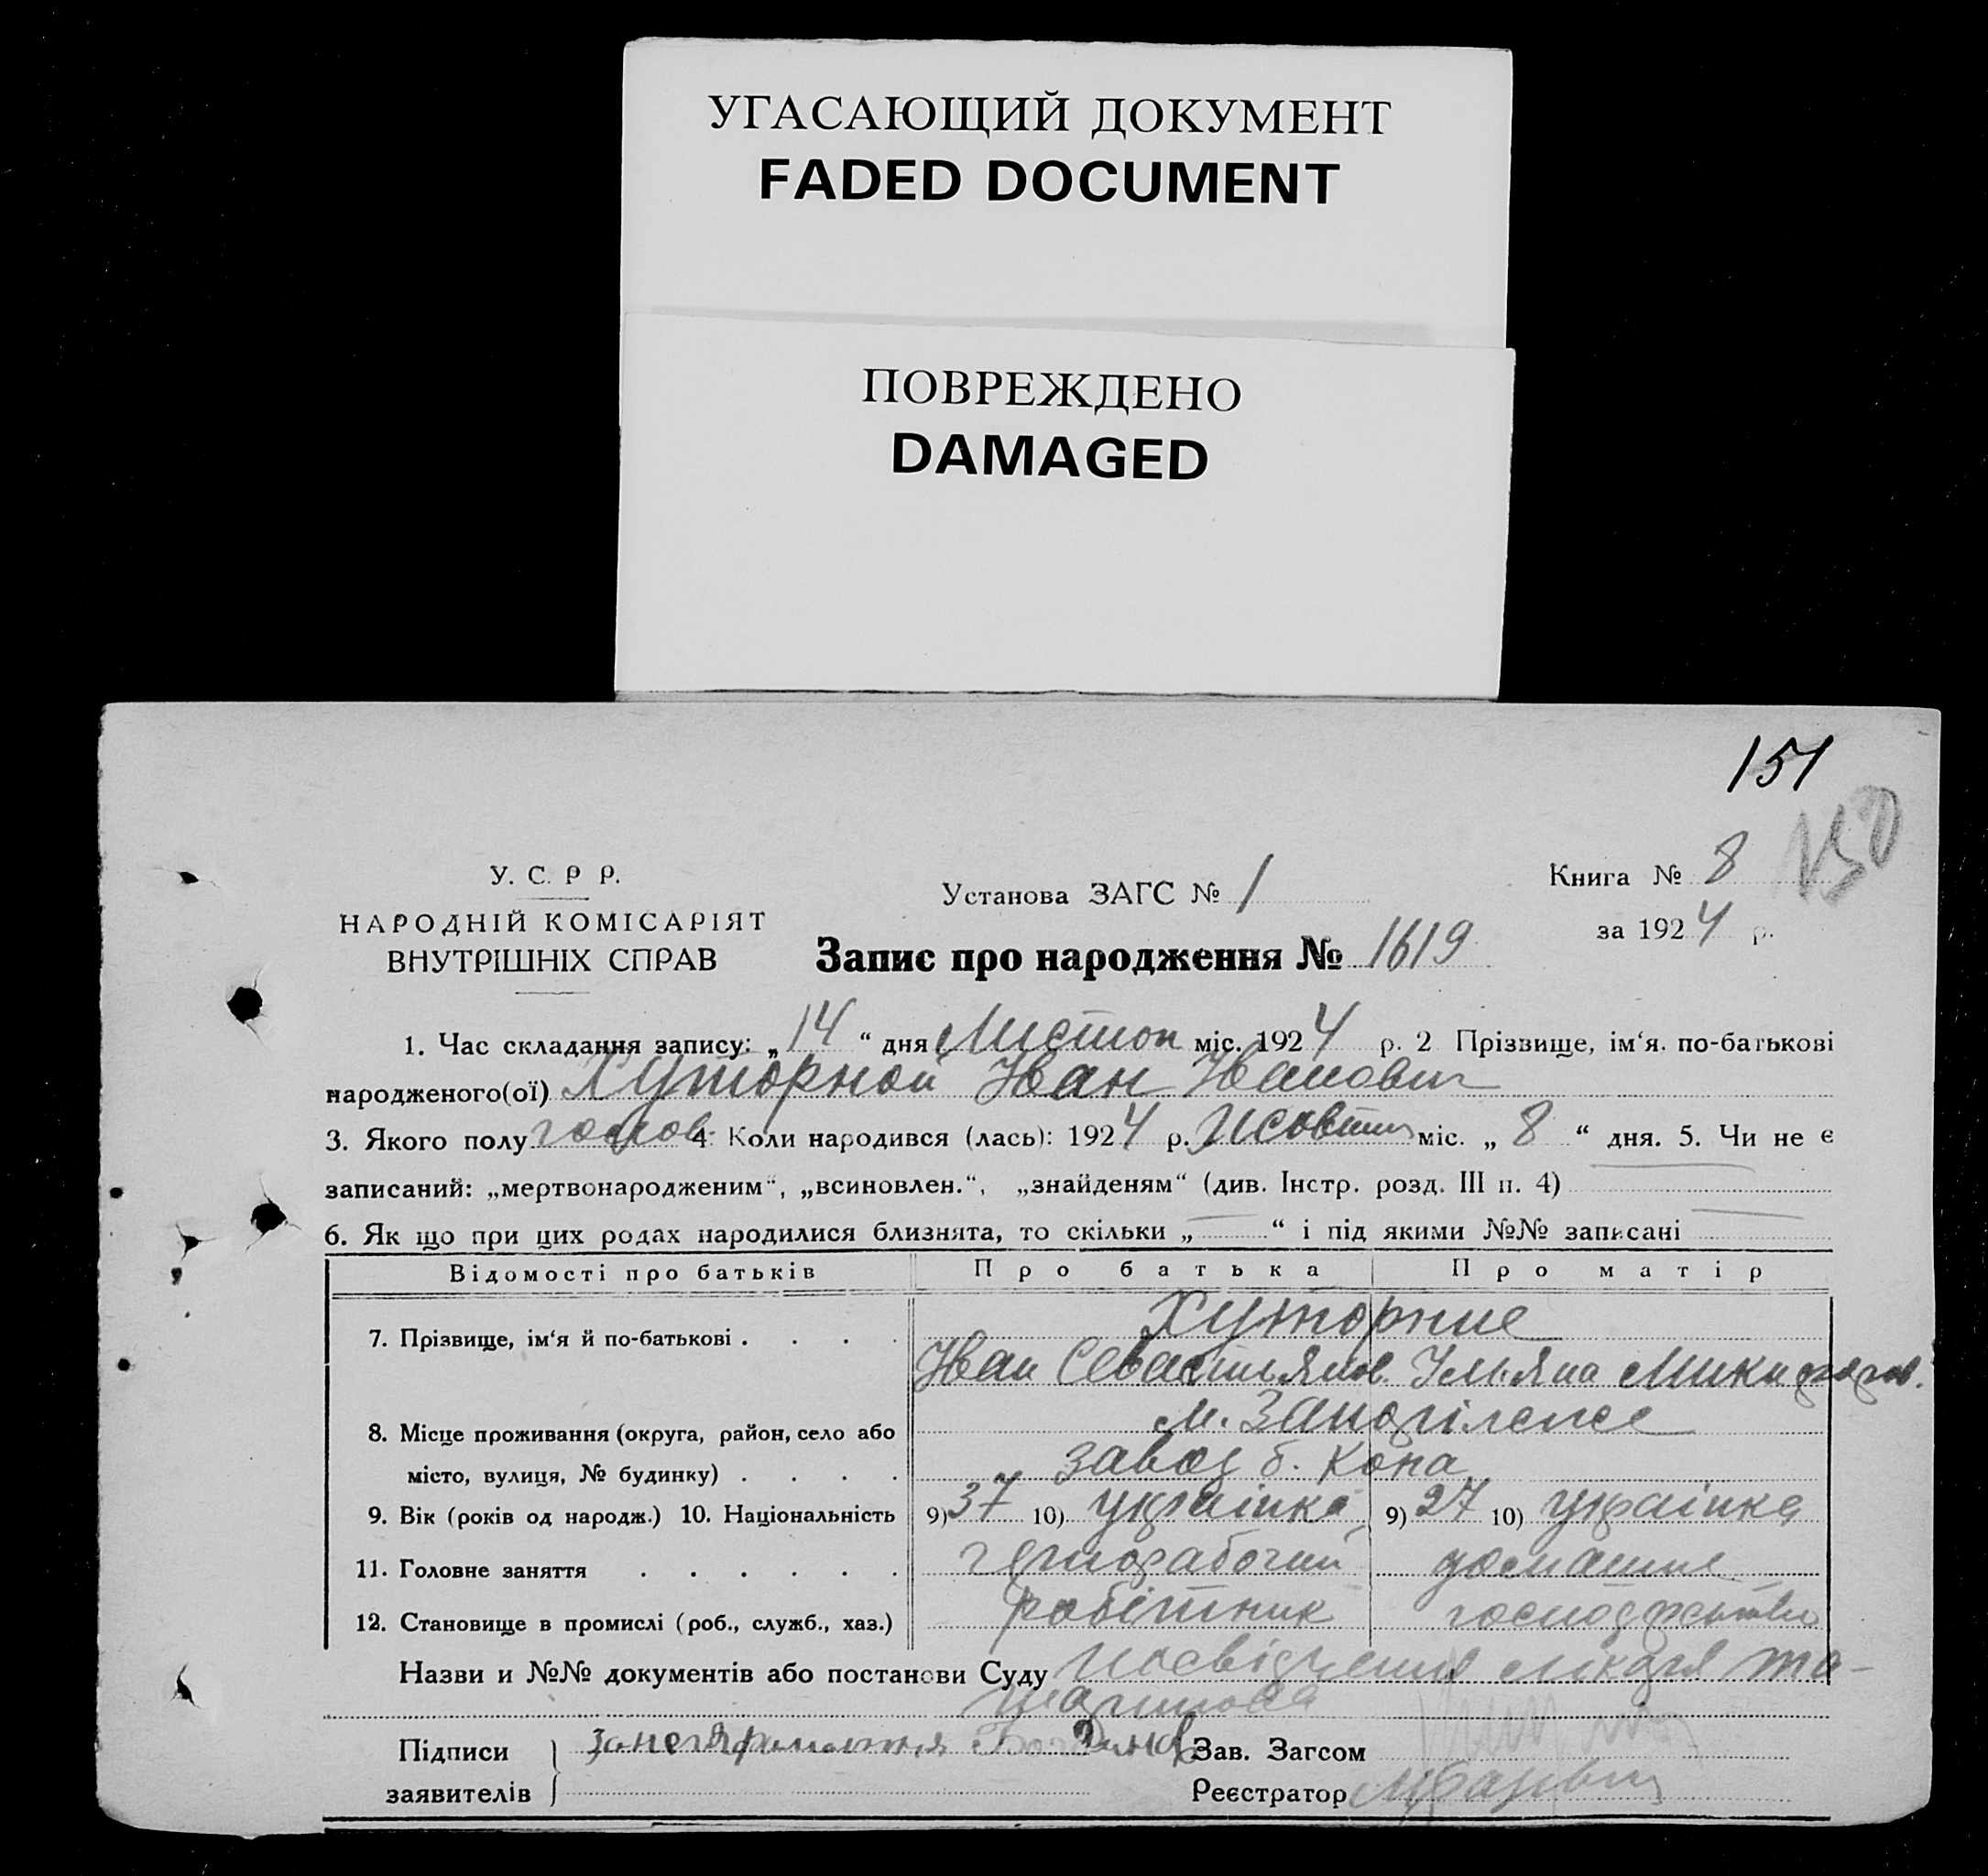 УГАСАЮЩИЙ ДОКУМЕНТ
FADED DOCUMENT
ПОВРЕЖДЕНО
DAMAGED
151
150
У. С. Р Р.
НАРОДНІЙ КОМІСАРІЯТ
ВНУТРІШНІХ СПРАВ
Установа ЗАГС № 1
Книга № 8
за 1924 р.
Запис про народження № 1619
1. Час складання запису: „14“ дня Листоп міс. 1924 р. 2 Прізвище, ім‘я. по-батькові
народженого(ої) Хуторной Іван Іванович
3. Якого полу 4 Коли народився (лась): 1924 р. міс. „8“ дня. 5. Чи не є
записаний: „мертвонародженим“, „всиновлен.“, „знайденям“ (див. Інстр. розд. III п. 4)
6. Як що при цих родах народилися близнята, то скільки „ “ і під якими №№ записані
Відомості про батьків Про батька Про матір
7. Прізвище, ім‘я й по-батькові . . . . Хуторние
Іван Севастьянов. Ульяна
8. Місце проживання (округа, район, село або м.
місто, вулиця, № будинку) . . . . завод б. Кона
9. Вік (років од народж.) 10. Національність 9) 37 10) українка 9) 27 10) українка
11. Головне заняття . . . . . . чернорабочий домашнє
12. Становище в промислі (роб., служб., хаз.) робітник господарство
Назви и №№ документів або постанови Суду посвідчення лікаря
Підписи
заявителів
Зав. Загсом
Реєстратор